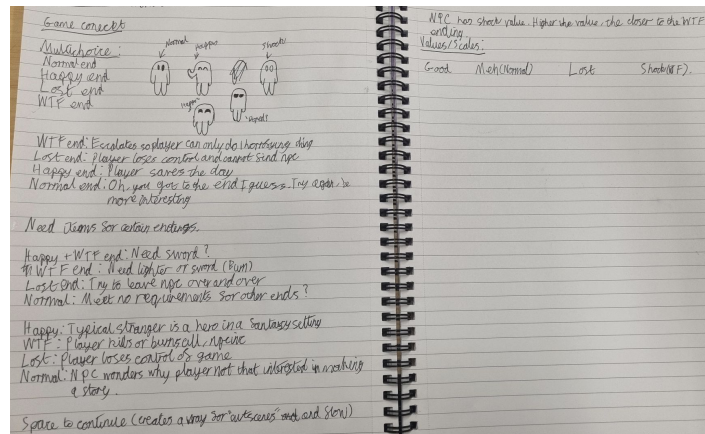 Game concept
Multichoice:
Normal end
Happy end
Lost end
WTF end
Normal
Happy
Shock!
Happy
WTF end: Escalates so player can only do 1 horrifying thing
Lost end: Player loses control and cannot find npc
Happy end: Player saves the day
Normal end: Oh, you got to the end I guess. Try again, be
more interesting
Need items for certain endings.
Happy + WTF end: Need sword?
WTF end: Need lighter or sword (Burn)
Lost end: Try to leave npc over and over
Normal: Meet no requirements for other ends?
Happy: Typical stranger is a hero in a fantasy setting
WTF: Player kills or burns all, npc inc
Lost: Player loses control of game
Normal: NPC wonders why player not that interested in making
a story.
Space to continue (creates a way for "cutscenes" and end slow)
NPC has shock value. Higher the value, the closer to the WTF
ending
Values/Scales:
Good Meh (Normal) Lost Shock (WTF).